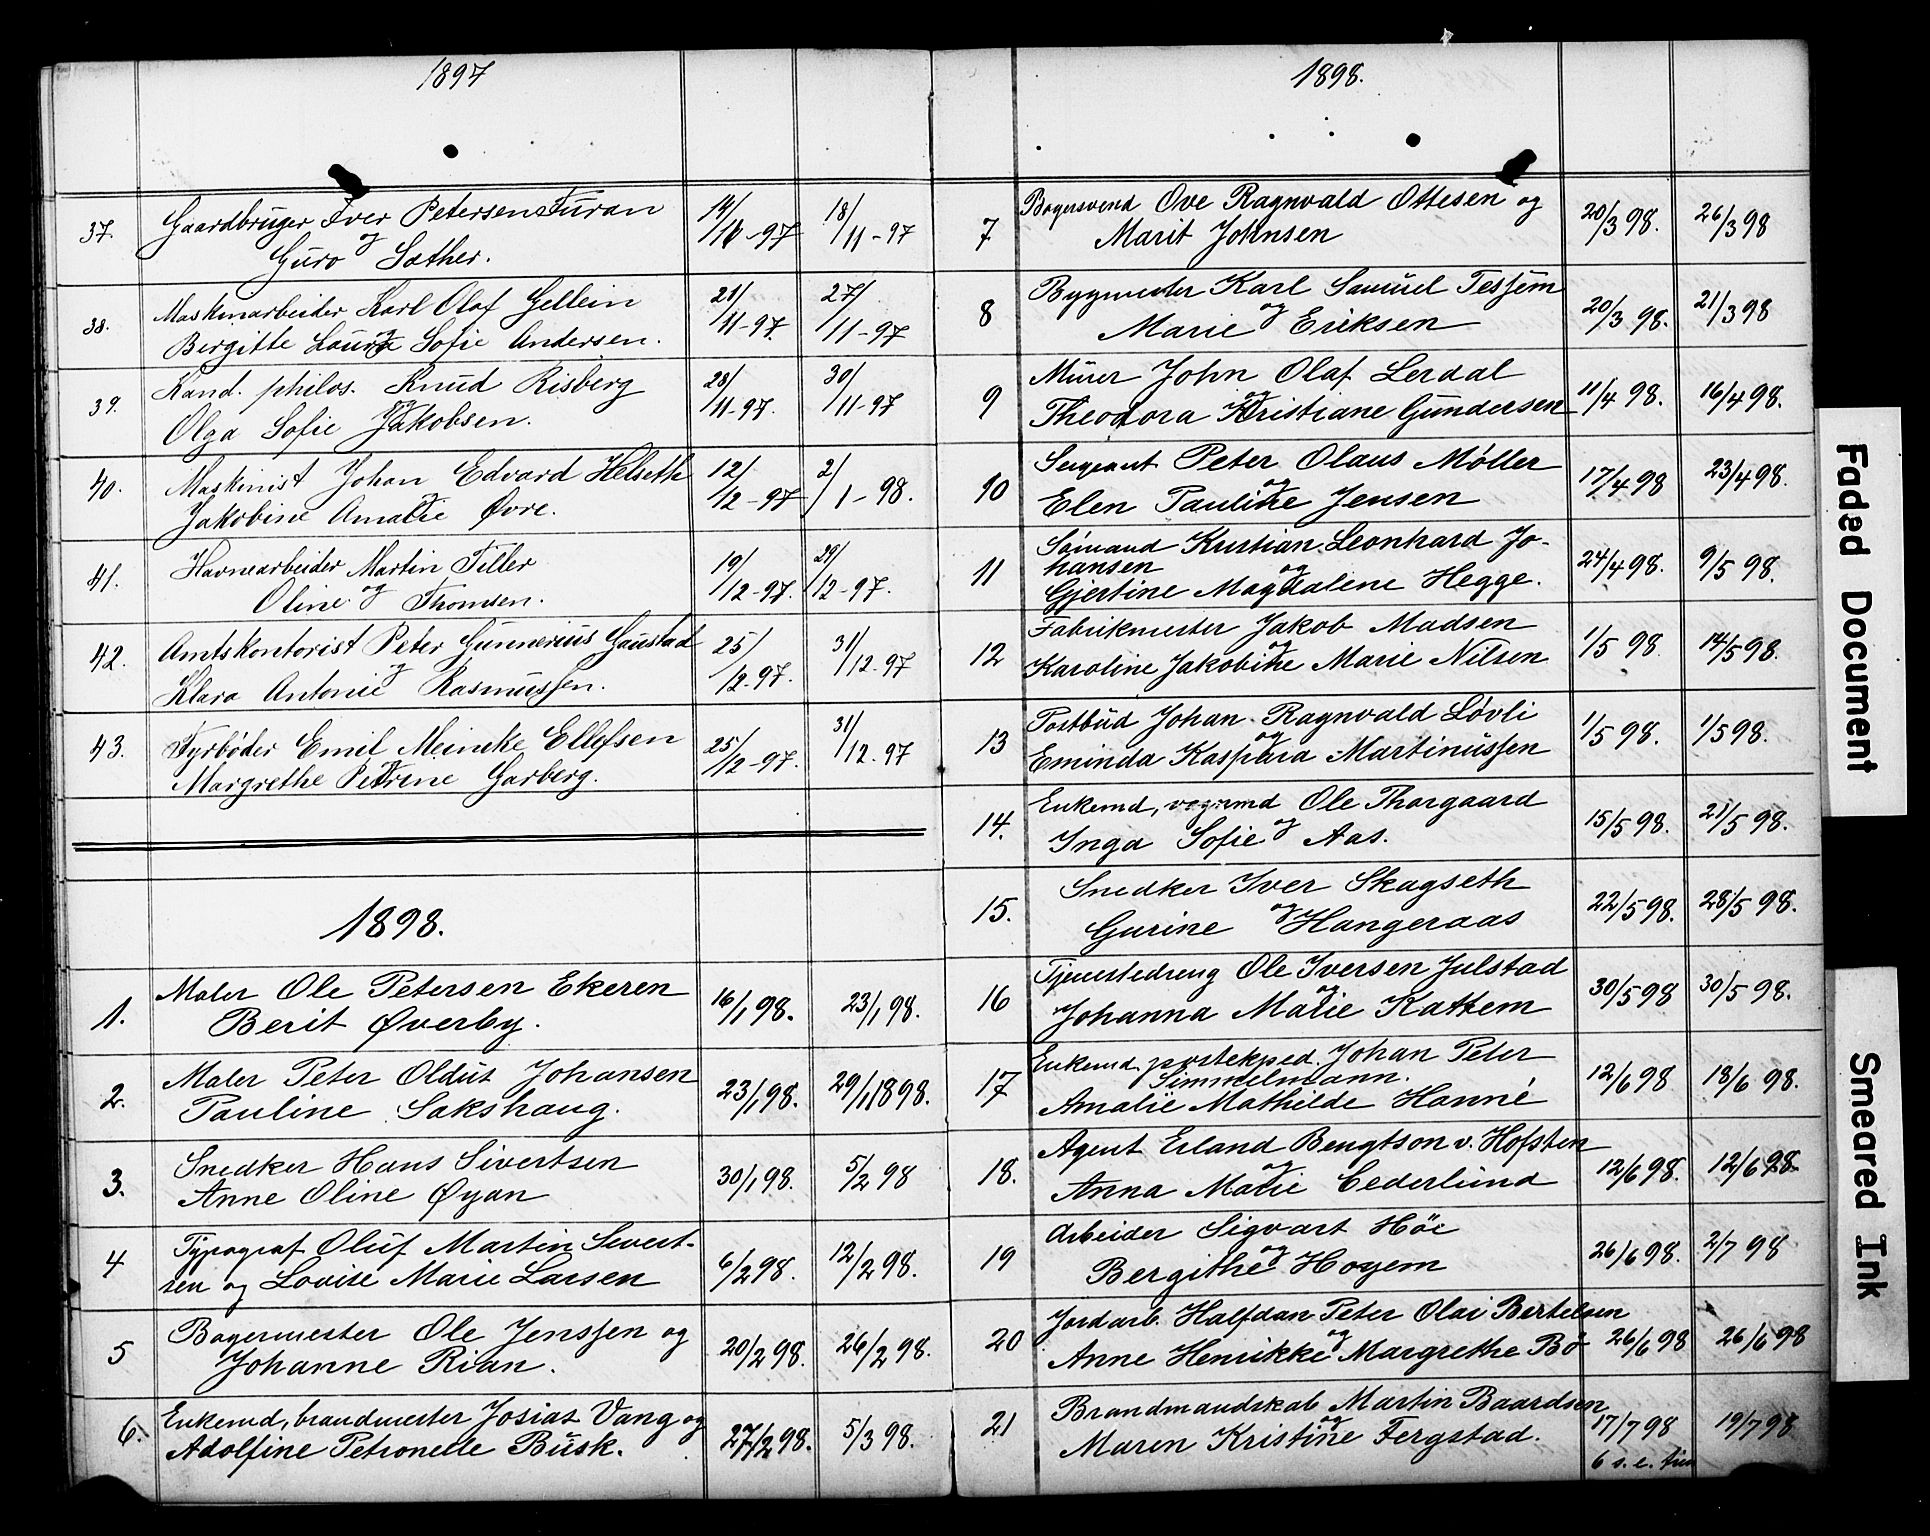 1897
37. Gaardbruger Iver Petersen Furan 14/11-97 18/11-97
og
Guro Sæther.
38. Maskinarbeider Karl Olaf Gellein 21/11-97. 27/11-97
og
Birgitte Laura Sofie Andersen.
39. Kand. philos. Knud Risberg 28/11-97. 30/11-97
og
Olga Sofie Jakobsen.
40. Maskinist Johan Edvard Helseth 12/12-97 2/1-98.
og
Jakobine Amalie Øvre.
41. Havnearbeider Martin Tiller 19/12-97. 29/12-97.
Oline og Thomsen.
42. Amtskontorist Peter Gunnerius Gaustad 25/12-97. 31/12-97
og
Klara Antonie Rasmussen.
43. Fyrbøder Emil Meincke Ellefsen 25/12-97. 31/12-97
og
Margrethe Petrine Garberg.
1898.
1. Maler Ole Petersen Ekeren 16/1 98. 23/1 98.
Berit Øverby.
2. Maler Peter Oldus Johansen 23/1 98. 29/1 1898.
Pauline Sakshaug.
3. Snedker Hans Sivertsen 30/1 98. 5/2 98
Anne Oline Øyan
4 Typograf Oluf Martin Sivert- 6/2 98. 12/2 98.
sen og Lovise Marie Larsen
5 Bagermester Ole Jenssen og 20/2 98. 26/2 98.
Johanne Rian.
6. Enkemd, brandmester Josias Vang og 27/2 98. 5/3 98.
Adolfine Petronelle Busk.
1898.
7 Bagersvend Ove Ragnvald Ottesen og 20/3 98. 26/3 98
Marit Johnsen
8 Bygmester Karl Samuel Tessem 20/3 98. 21/3 98
og
Marie Eriksen
9 Murer John Olaf Lerdal 11/4 98. 16/4 98.
og
Theodora Kristiane Gundersen
10 Sergeant Peter Olaus Møller 17/4 98 23/4 98.
og
Elen Pauline Jensen
11 Sømand Kristian Leonhard Jo- 24/4 98. 9/5 98.
hansen
og
Gjertine Magdalene Hegge.
12 Fabrikmester Jakob Madsen 1/5 98. 14/5 98.
og
Karoline Jakobine Marie Nilsen
13 Postbud Johan Ragnvald Løvli 1/5 98. 1/5 98.
og
Eminda Kaspara Martinussen
14. Enkemd, vognmd Ole Thorgaard 15/5 98. 21/5 98.
og
Inga Sofie Aas.
15. Snedker Iver Skagseth 22/5 98. 28/5 98.
og
Gurine Hangeraas
16 Tjenestedreng Ole Iversen Julstad 30/5 98 30/5 98.
og
Johanna Marie Kattem
17 Enkemd. postekped. Johan Peter 12/6 98 18/6 98.
Simmelmann.
Amalie Mathilde Hanne
18. Agent Erland Bengtson v. Hofsten 12/6 98. 12/6 98.
og
Anna Marie Cederlund
19 Arbeider Sigvart Höe 26/6 98. 2/7 98
og
Bergithe Hoyem
20 Jordarb. Halfdan Peter Olai Bertelsen 26/6 98 26/6 98
og
Anne Henrikke Margrethe Bø
21 Brandmandskab Martin Baardsen 17/7 98 19/7 98
og
Maren Kristine Fergstad.
6 s. e. trin
Faded Document
Smeared Ink